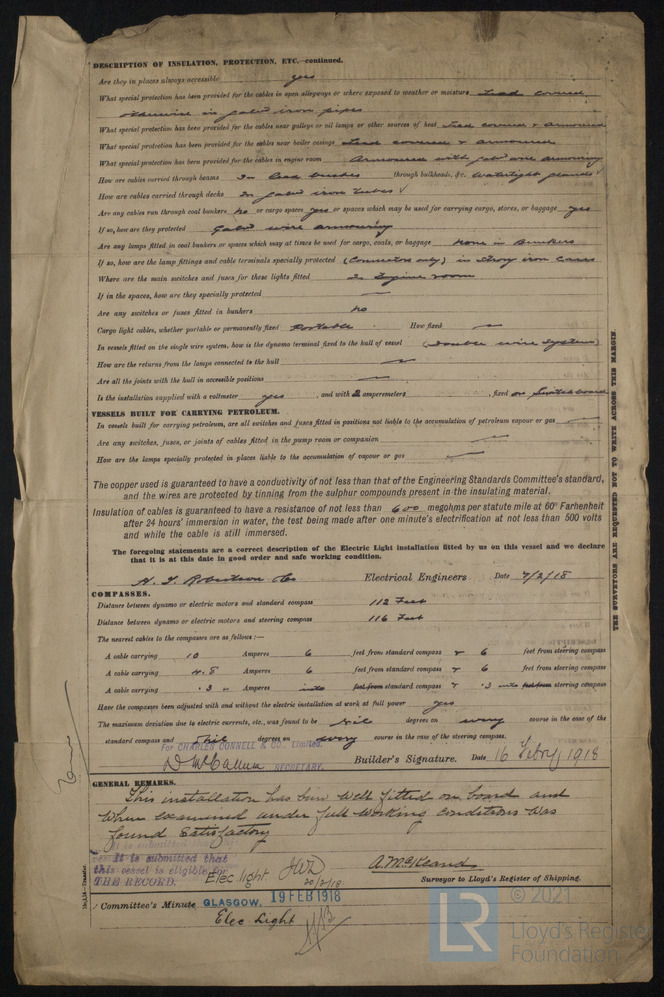 DESCRIPTION OF INSULATION, PROTECTION, ETC.—continued.
Are they in places always accessible yes
What special protection has been provided for the cables in open alleyways or where exposed to weather or moisture Lead covered
otherwise in galvd iron pipes
What special protection has been provided for the cables near galleys or oil lamps or other sources of heat Lead covered & armoured
What special protection has been provided for the cables near boiler casings Lead covered & armoured
What special protection has been provided for the cables in engine room Armoured with galvd wire armouring
How are cables carried through beams In lead bushes through bulkheads, &c. Watertight glands ✓
How are cables carried through decks In galvd iron tubes ✓
Are any cables run through coal bunkers no or cargo spaces yes or spaces which may be used for carrying cargo, stores, or baggage yes
If so, how are they protected Galvd wire armouring
Are any lamps fitted in coal bunkers or spaces which may at times be used for cargo, coals, or baggage None in Bunkers
If so, how are the lamp fittings and cable terminals specially protected (Connectors only) in strong iron cases
Where are the main switches and fuses for these lights fitted In Engine room
If in the spaces, how are they specially protected —
Are any switches or fuses fitted in bunkers no
Cargo light cables, whether portable or permanently fixed Portable How fixed —
In vessels fitted on the single wire system, how is the dynamo terminal fixed to the hull of vessel (Double wire System)
How are the returns from the lamps connected to the hull —
Are all the joints with the hull in accessible positions —
Is the installation supplied with a voltmeter yes , and with 2 amperemeters , fixed on Switchboard
VESSELS BUILT FOR CARRYING PETROLEUM.
In vessels built for carrying petroleum, are all switches and fuses fitted in positions not liable to the accumulation of petroleum vapour or gas —
Are any switches, fuses, or joints of cables fitted in the pump room or companion —
How are the lamps specially protected in places liable to the accumulation of vapour or gas —
The copper used is guaranteed to have a conductivity of not less than that of the Engineering Standards Committee's standard,
and the wires are protected by tinning from the sulphur compounds present in the insulating material.
Insulation of cables is guaranteed to have a resistance of not less than 600 megohms per statute mile at 60° Farhenheit
after 24 hours' immersion in water, the test being made after one minute's electrification at not less than 500 volts
and while the cable is still immersed.
The foregoing statements are a correct description of the Electric Light installation fitted by us on this vessel and we declare
that it is at this date in good order and safe working condition.
H. T. Robertson Co Electrical Engineers Date 7/2/18
COMPASSES.
Distance between dynamo or electric motors and standard compass 112 Feet
Distance between dynamo or electric motors and steering compass 116 Feet
The nearest cables to the compasses are as follows:—
A cable carrying 10 Amperes 6 feet from standard compass & 6 feet from steering compass
A cable carrying 4.8 Amperes 6 feet from standard compass & 6 feet from steering compass
A cable carrying .3 " Amperes into feet from standard compass & .3 into feet from steering compass
Have the compasses been adjusted with and without the electric installation at work at full power yes
The maximum deviation due to electric currents, etc., was found to be Nil degrees on every course in the case of the
standard compass and Nil degrees on every course in the case of the steering compass.
For CHARLES CONNELL & CO. Limited.
D McCallum SECRETARY. Builder's Signature. Date 16 Febry 1918
GENERAL REMARKS.
This installation has been well fitted on board and
when examined under full working conditions was
found satisfactory
It is submitted that
this vessel is eligible for
THE RECORD. Elec light JWD 20/2/18
A. McKeand
Surveyor to Lloyd's Register of Shipping.
Committee's Minute GLASGOW. 19 FEB 1918
Elec Light
THE SURVEYORS ARE REQUESTED NOT TO WRITE ACROSS THIS MARGIN.
© 2021
LR
Lloyd's Register
Foundation